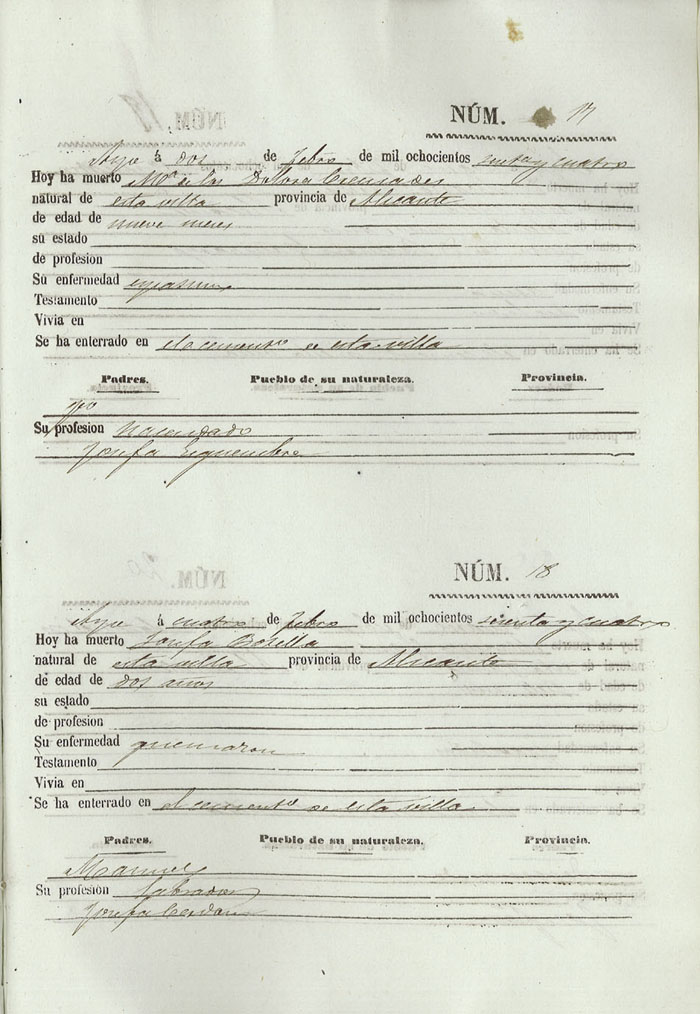 NÚM. 17
á dos de Febro de mil ochocientos sesenta y cuatro
Hoy ha muerto Mª de los Dolores Cremades
natural de esta villa provincia de Alicante
de edad de nueve meses
su estado
de profesion
Su enfermedad
Testamento
Vivia en
Se ha enterrado en el cementº de esta villa
Padres. Pueblo de su naturaleza. Provincia.
Su profesion hacendado
Josefa
NÚM. 18
á cuatro de Febro de mil ochocientos sesenta y cuatro
Hoy ha muerto Josefa Botella
natural de esta villa provincia de Alicante
de edad de dos años
su estado
de profesion
Su enfermedad
Testamento
Vivia en
Se ha enterrado en el cementº de esta villa
Padres. Pueblo de su naturaleza. Provincia.
Manuel
Su profesion labrador
Josefa